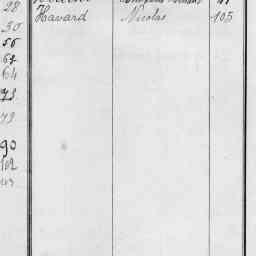 28
Havard Nicolas 105
30
56
62
64
73
79
90
102